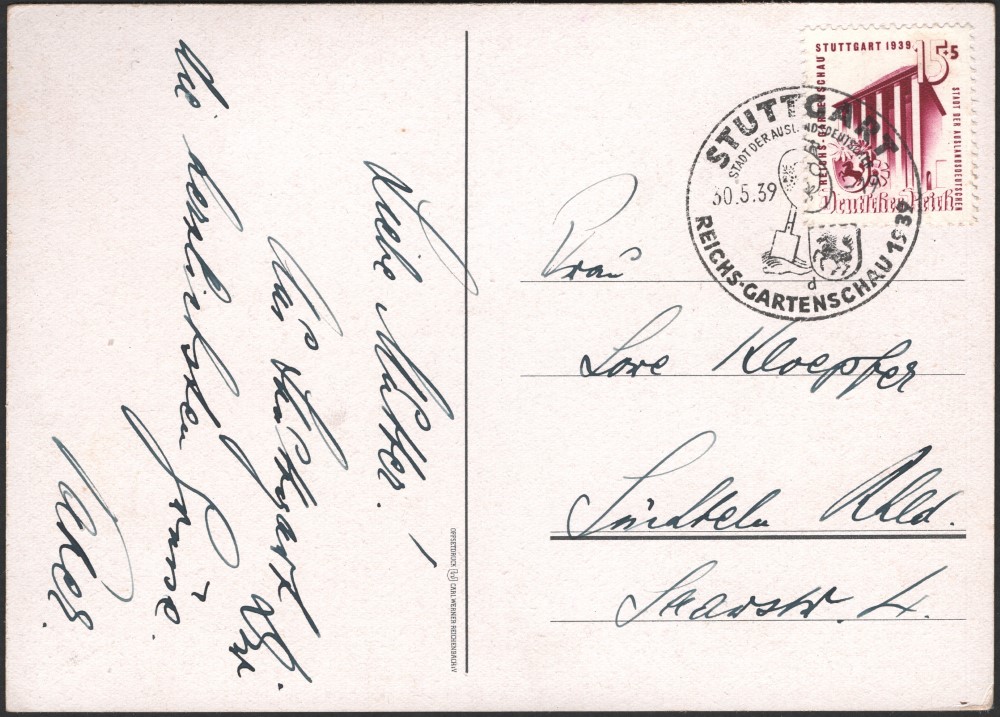 Liebe Mutter!
Aus Stuttgart Dir
die herzlichsten Grüsse.
STUTTGART 1939
15+5
REICHS-GARTENSCHAU
STADT DER AUSLANDSDEUTSCHEN
Deutsches Reich
STUTTGART
STADT DER AUSLANDSDEUTSCHEN
30.5.39
d
REICHS-GARTENSCHAU 1939
Frau
Lore Kloepfer
Süchteln Rhld.
OFFSETDRUCK CARL WERNER REICHENBACH i/V